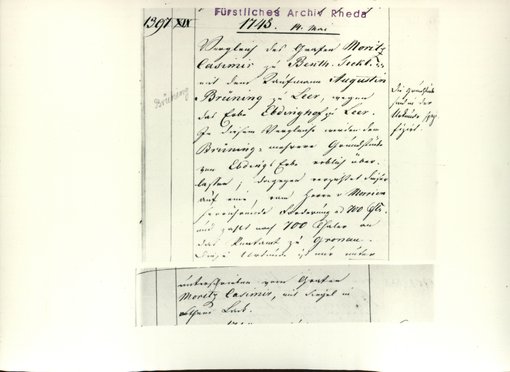 Fürstliches Archiv Rheda
1397 XIX
1743. 14. Mai
Vergleich des Grafen Moritz
Casimir zu Benth. Teckl.
mit dem Kaufmann Augustin
Brüning zu Leer, wegen
des Erbe Ebdinghof zu Leer.
In diesem Vergleiche werden dem
Brüning mehrere Grundstücke
von Ebdings Erbe erblich über-
lassen, dagegen verzichtet dieser
auf eine, vom Herrn v.
herrührende Forderung 700
und zahlt noch 700 Thaler an
das Rentamt zu Gronau.
Diese Urkunde ist nur unter
unterschrieben vom Grafen
Moritz Casimir, mit Siegel in
Lack.
Brüning
Die Grundstücke
sind in der
Urkunde spez
fizirt.